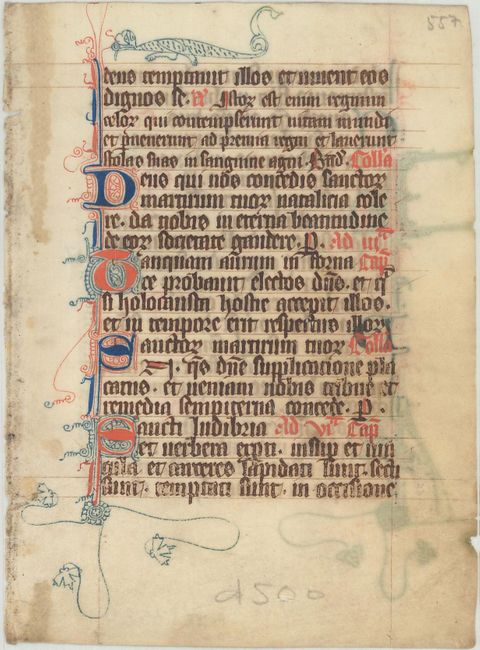 557
deus temptauit illos et inuenit eos
dignos se. Istor est enim regnum
celor qui contempserunt uitam mundi
et puenerunt ad premia regni et lauerunt
stolas suas in sanguine agni. Colla
Deus qui nos concedis sanctor
martirum tuor natalicia cole
re. da nobis in eterna beatitudine
de eor societate gaudere. P. Ad
Tanquam aurum in forna Cap
ce probauit electos dns. et
si holocausti hostie accepit illos.
et in tempore erit respectus illor
Sanctor martirum tuor Colla
qs dne supplicatione pla
catus. et ueniam nobis tribue et
remedia sempiterna concede. P.
Sancti ludibria Ad Cap
et uerbera experti. insup et uin
cula et carceres lapidati sunt. secti
sunt. temptati sunt. in occisione
d500